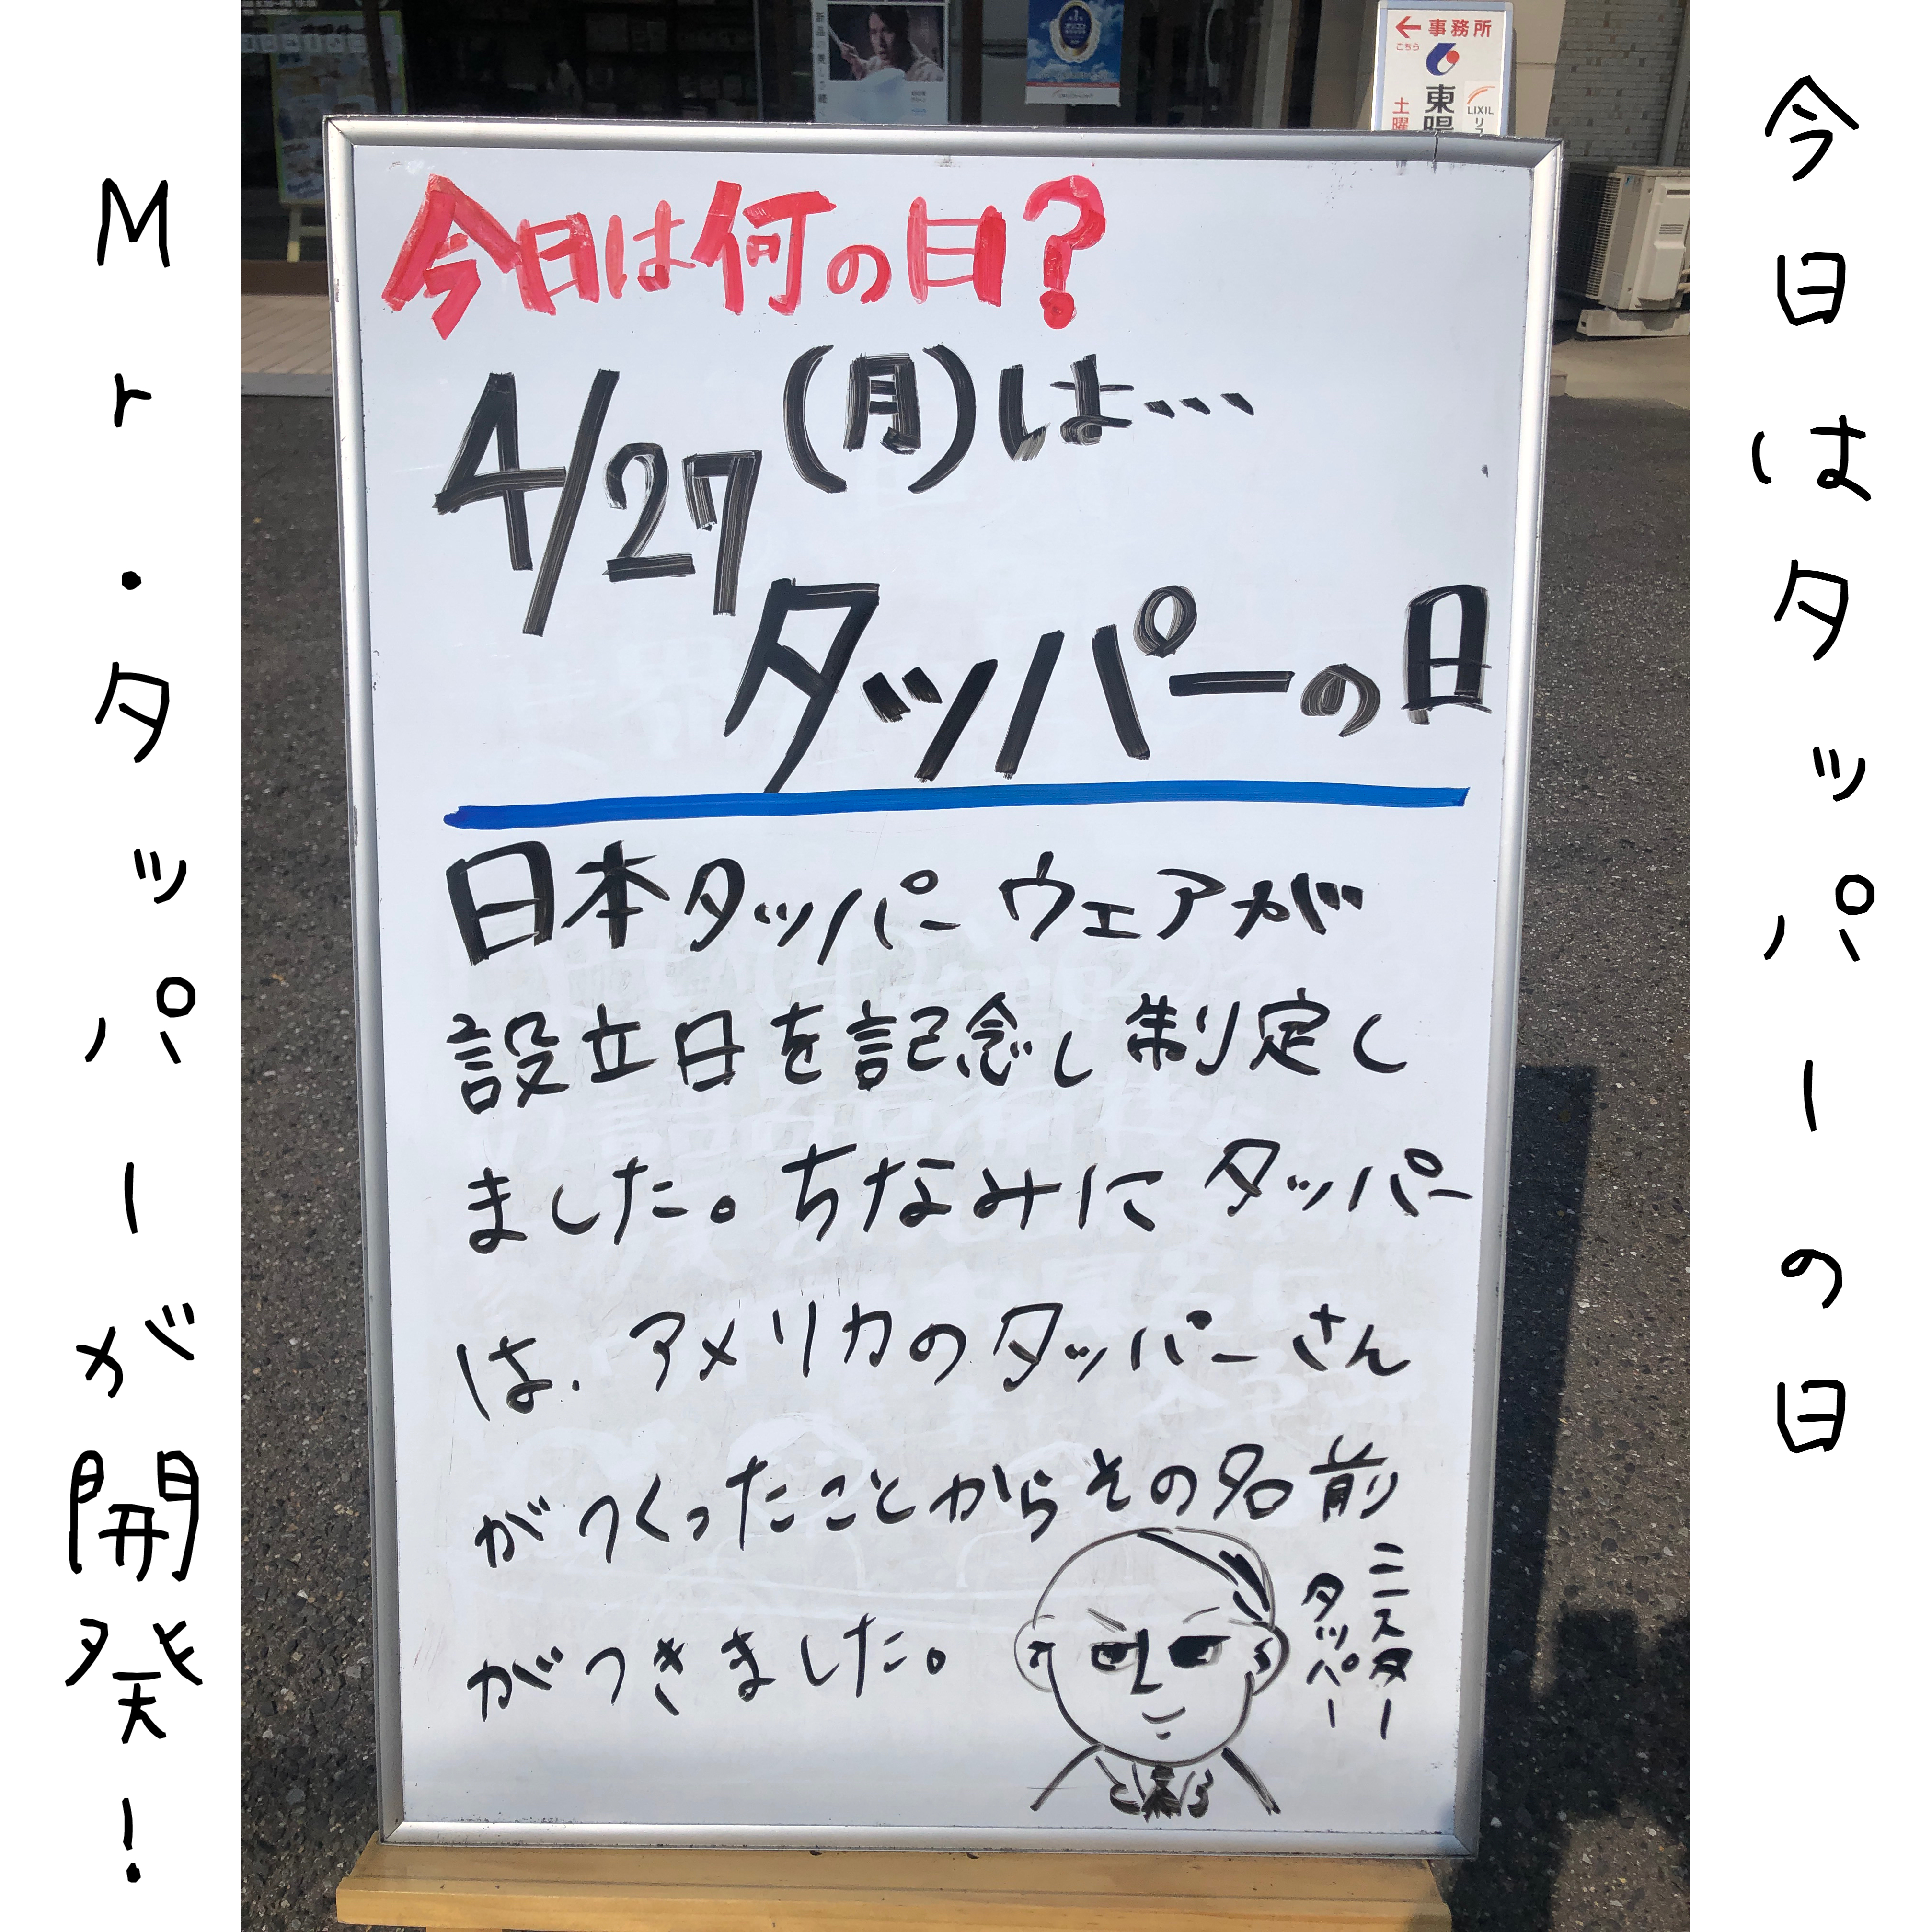 今日はタッパーの日
Mr.タッパーが開発!
新品の美しさ続
← 事務所
こちら
東陽
土曜
LIXIL
リフ
今日は何の日?
4/27(月)は…
タッパーの日
日本タッパーウェアが
設立日を記念し制定し
ました。ちなみにタッパー
は、アメリカのタッパーさん
がつくったことからその名前
がつきました。
ミニスター
タッパー